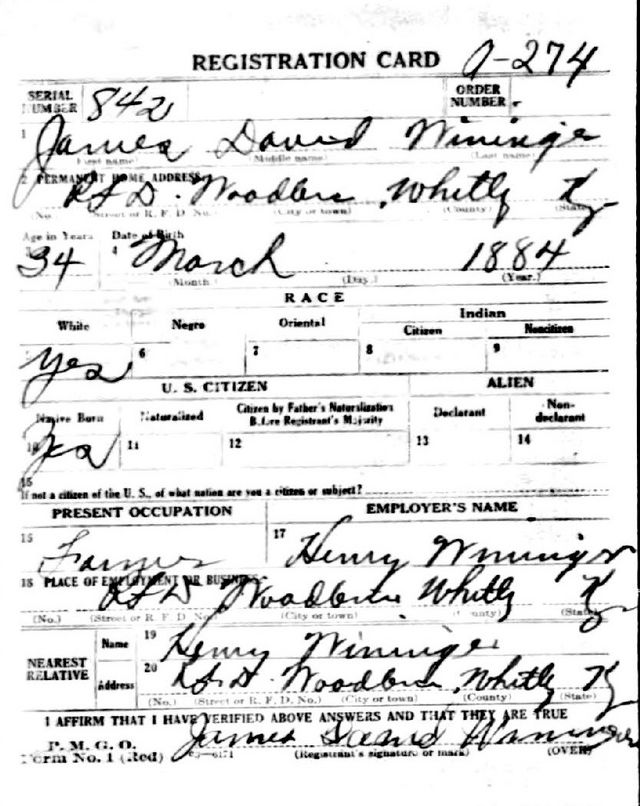 REGISTRATION CARD A-274
SERIAL NUMBER 842 ORDER NUMBER
1 James David Wininger
(First name) (Middle name) (Last name)
2 PERMANENT HOME ADDRESS
RFD. Woodbine, Whitly Ky
(No.) (Street or R. F. D. No.) (City or town) (County) (State)
Age in Years Date of Birth
34 4 March 1884
(Month.) (Day.) (Year.)
RACE
White Negro Oriental Indian
Citizen Noncitizen
Yes 6 7 8 9
U. S. CITIZEN ALIEN
Native Born Naturalized Citizen by Father's Naturalization Before Registrant's Majority Declarant Non-declarant
10 Yes 11 12 13 14
15
If not a citizen of the U. S., of what nation are you a citizen or subject?
PRESENT OCCUPATION EMPLOYER'S NAME
16 Farmer 17 Henry Wininger
18 PLACE OF EMPLOYMENT OR BUSINESS:
RFD Woodbine Whitly Ky
(No.) (Street or R. F. D. No.) (City or town) (County) (State)
NEAREST RELATIVE Name 19 Henry Wininger
Address 20 RFD. Woodbine, Whitly Ky
(No.) (Street or R. F. D. No.) (City or town) (County) (State)
I AFFIRM THAT I HAVE VERIFIED ABOVE ANSWERS AND THAT THEY ARE TRUE
P. M. G. O.
Form No. 1 (Red) James David Wininger
(Registrant's signature or mark) (OVER)